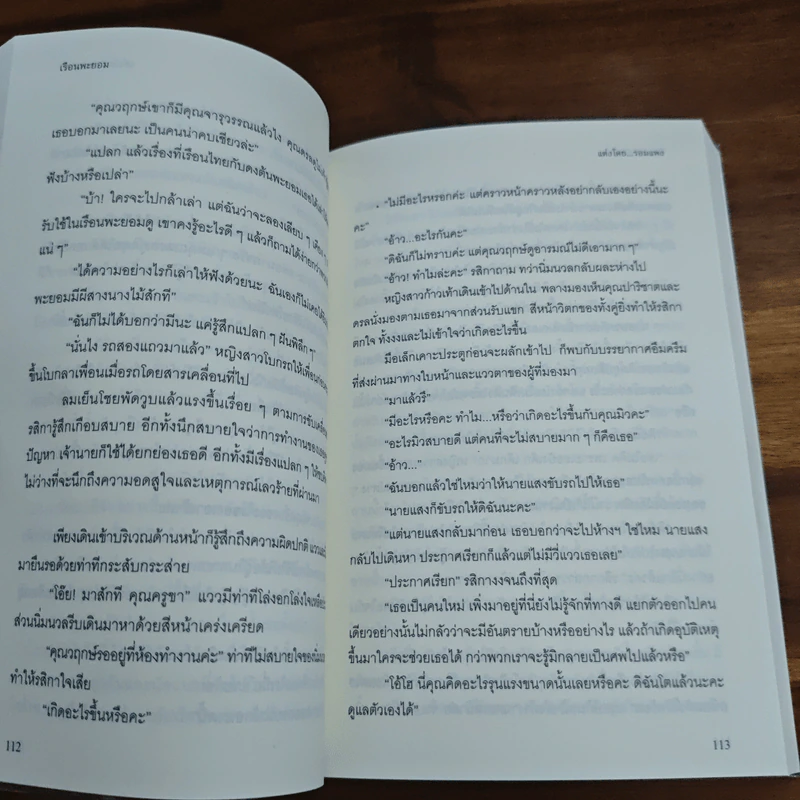 เรือนพะยอม
“คุณวฤกษ์เขาก็มีคุณจารุวรรณแล้วไง
เธอบอกมาเลยนะ เป็นคนน่าคบเชียวล่ะ”
“แปลก แล้วเรื่องที่เรือนไทยกับดงต้นพะยอมเธอได้
ฟังบ้างหรือเปล่า”
“บ้า! ใครจะไปกล้าเล่า แต่ฉันว่าจะลองเลียบ ๆ
รับใช้ในเรือนพะยอมดู เขาคงรู้อะไรดี ๆ แล้วก็ถามได้ง่ายกว่า
แน่ ๆ”
“ได้ความอย่างไรก็เล่าให้ฟังด้วยนะ ฉันเองก็ไม่เคย
พะยอมมีผีสางนางไม้สักที”
“ฉันก็ไม่ได้บอกว่ามีนะ แค่รู้สึกแปลก ๆ ฝันพิลึก ๆ”
“นั่นไง รถสองแถวมาแล้ว” หญิงสาวโบกรถให้เพื่อน
ขึ้นโบกลาเพื่อนเมื่อรถโดยสารเคลื่อนที่ไป
ลมเย็นโชยพัดวูบแล้วแรงขึ้นเรื่อย ๆ ตามการขับเคลื่อน
รสิการู้สึกเกือบสบาย อีกทั้งนึกสบายใจว่าการทำงานของ
ปัญหา เจ้านายก็ใช้ได้ยกย่องเธอดี อีกทั้งมีเรื่องแปลก ๆ
ไม่ว่างที่จะนึกถึงความอดสูใจและเหตุการณ์เลวร้ายที่ผ่านมา
เพียงเดินเข้าบริเวณด้านหน้าก็รู้สึกถึงความผิดปกติ
มายืนรอด้วยท่าทีกระสับกระส่าย
“โอ๊ย! มาสักที คุณครูขา” แววมีท่าทีโล่งอกโล่งใจ
ส่วนนิ่มนวลรีบเดินมาหาด้วยสีหน้าเคร่งเครียด
“คุณวฤกษ์รออยู่ที่ห้องทำงานค่ะ” ท่าทีไม่สบายใจของ
ทำให้รสิกาใจเสีย
“เกิดอะไรขึ้นหรือคะ”
112
แต่งโดย...รอมแพง
“ไม่มีอะไรหรอกค่ะ แต่คราวหน้าคราวหลังอย่ากลับเองอย่างนี้นะ
คะ”
“อ้าว...อะไรกันคะ”
“ดิฉันก็ไม่ทราบค่ะ แต่คุณวฤกษ์ดูอารมณ์ไม่ดีเอามาก ๆ”
“อ้าว! ทำไมล่ะคะ” รสิกาถาม ทว่านิ่มนวลกลับผละห่างไป
หญิงสาวก้าวเท้าเดินเข้าไปด้านใน พลางมองเห็นคุณปาริชาตและ
ดรลนั่งมองตามเธอมาจากส่วนรับแขก สีหน้าวิตกของทั้งคู่ยิ่งทำให้รสิกา
ตกใจ ทั้งงงและไม่เข้าใจว่าเกิดอะไรขึ้น
มือเล็กเคาะประตูก่อนจะผลักเข้าไป ก็พบกับบรรยากาศอึมครึม
ที่ส่งผ่านมาทางใบหน้าและแววตาของผู้ที่มองมา
“มาแล้วรึ”
“มีอะไรหรือคะ ทำไม...หรือว่าเกิดอะไรขึ้นกับคุณมิวคะ”
“อะไรมิวสบายดี แต่คนที่จะไม่สบายมาก ๆ ก็คือเธอ”
“อ้าว...”
“ฉันบอกแล้วใช่ไหมว่าให้นายแสงขับรถไปให้เธอ”
“นายแสงก็ขับรถให้ดิฉันนะคะ”
“แต่นายแสงกลับมาก่อน เธอบอกว่าจะไปห้างฯ ใช่ไหม นายแสง
กลับไปเดินหา ประกาศเรียกก็แล้วแต่ไม่มีวี่แววเธอเลย”
“ประกาศเรียก” รสิกางงจนถึงที่สุด
“เธอเป็นคนใหม่ เพิ่งมาอยู่ที่นี่ยังไม่รู้จักที่ทางดี แยกตัวออกไปคน
เดียวอย่างนั้นไม่กลัวว่าจะมีอันตรายบ้างหรืออย่างไร แล้วถ้าเกิดอุบัติเหตุ
ขึ้นมาใครจะช่วยเธอได้ กว่าพวกเราจะรู้มิกลายเป็นศพไปแล้วหรือ”
“โอ้โฮ นี่คุณคิดอะไรรุนแรงขนาดนั้นเลยหรือคะ ดิฉันโตแล้วนะคะ
ดูแลตัวเองได้”
113